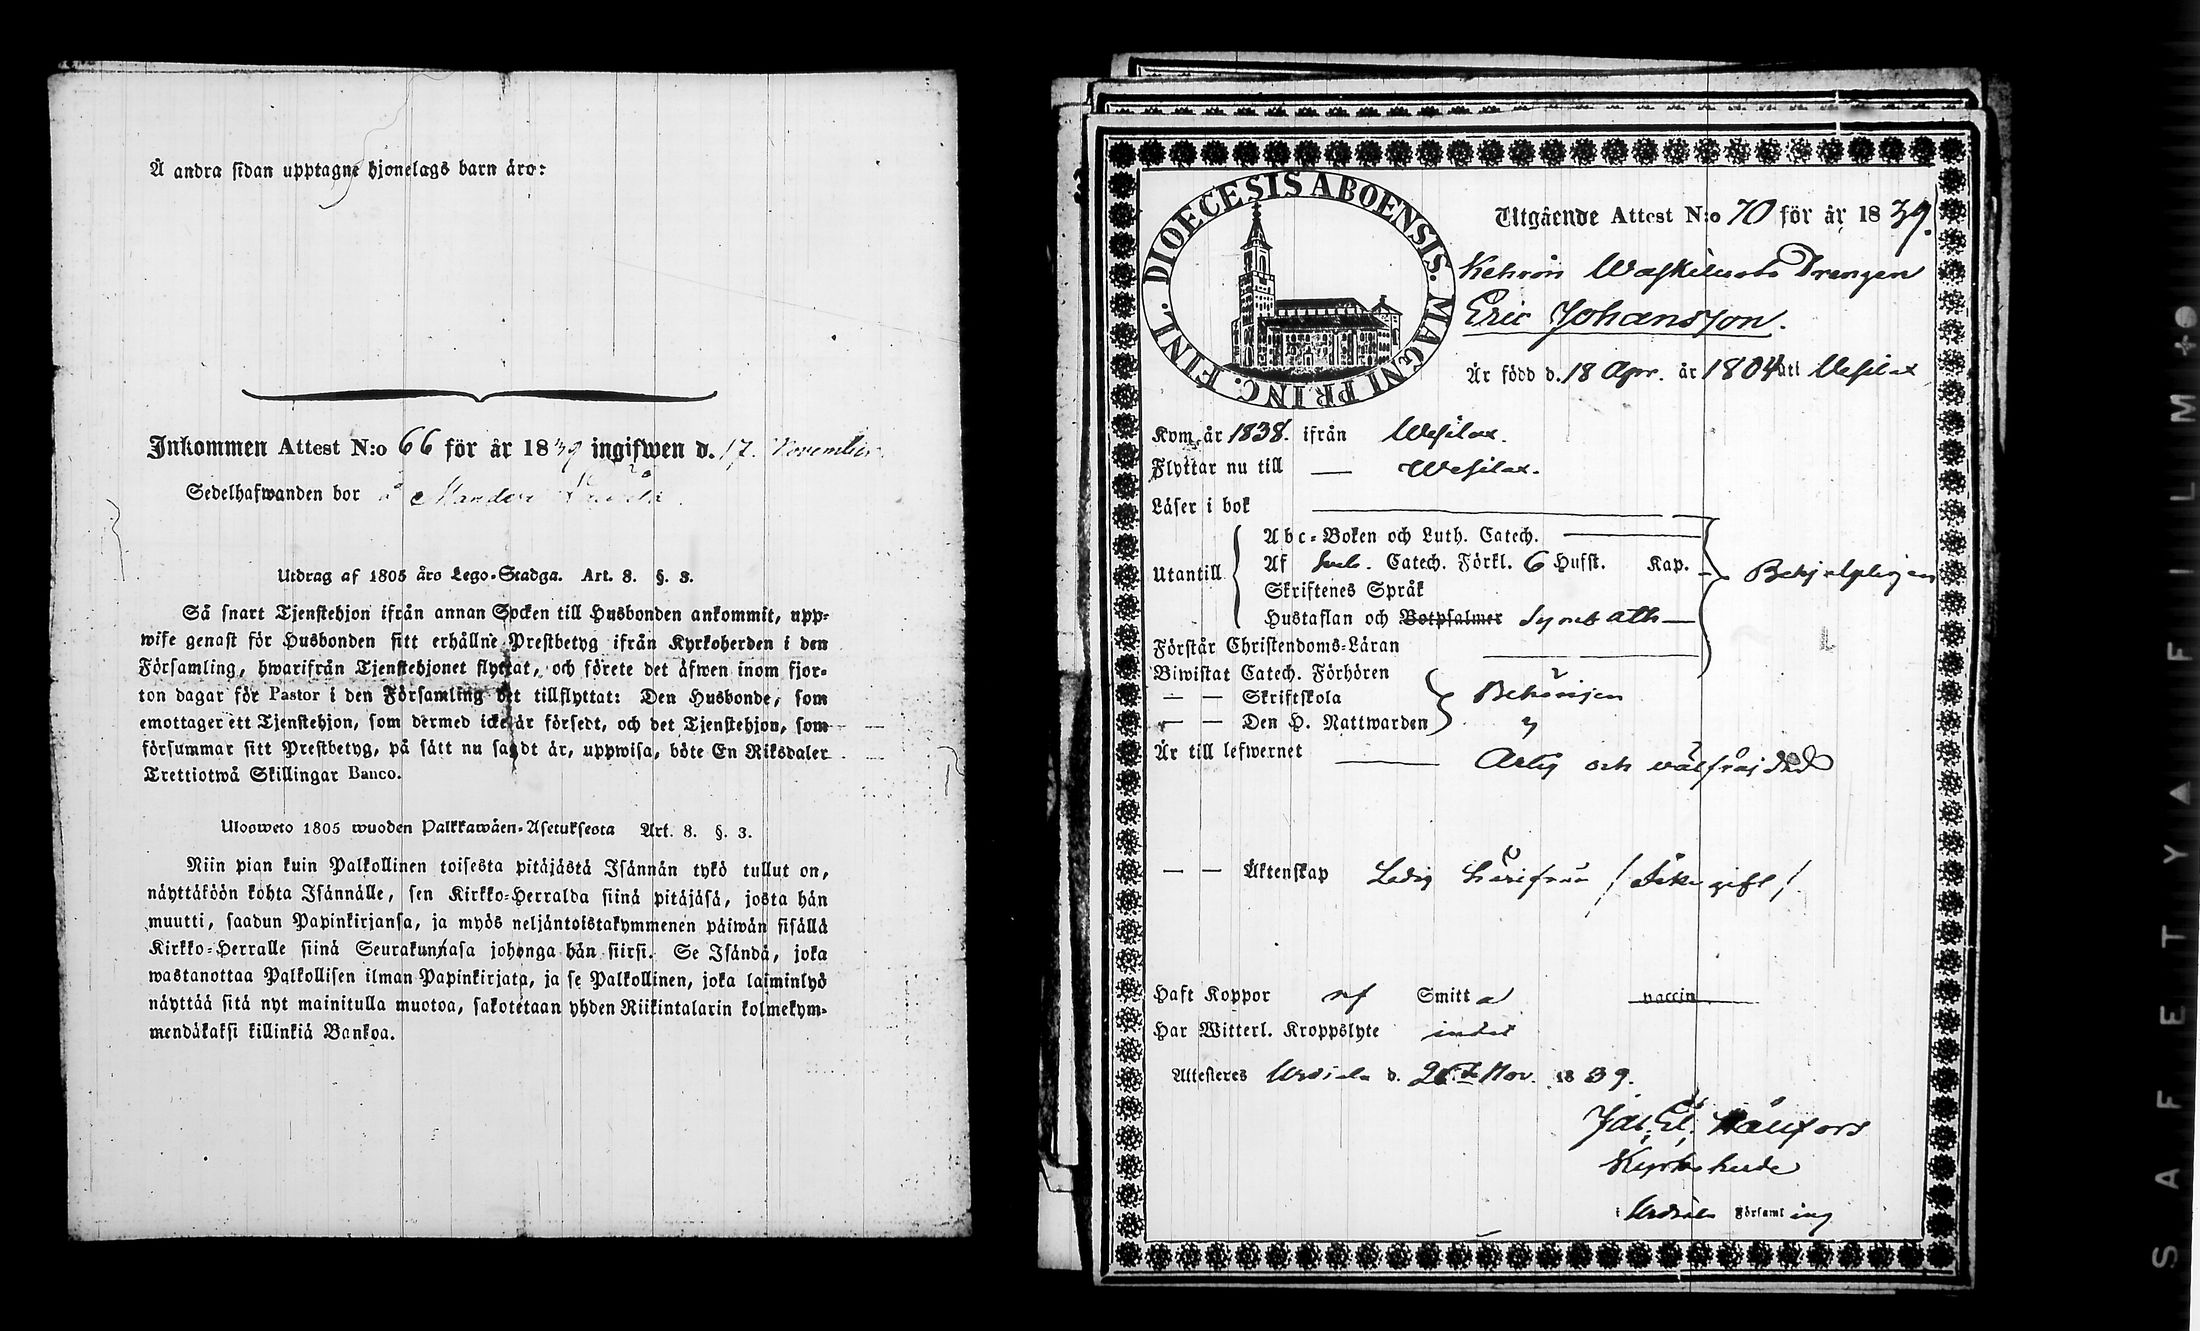 Å andra sidan upptagne hjonelags barn äro:
Inkommen Attest N:o 66 för år 1839 ingifwen d. 17. November
Sedelhafwanden bor å
Utdrag af 1805 års Lego-Stadga. Art. 8. §. 3.
Så snart Tjenstehjon ifrån annan Socken till Husbonden ankommit, upp-
wise genast för Husbonden sitt erhållne Prestbetyg ifrån Kyrkoherden i den
Församling, hwarifrån Tjenstehjonet flyttat, och förete det äfwen inom fjor-
ton dagar för Pastor i den Församling det tillflyttat: Den Husbonde, som
emottager ett Tjenstehjon, som dermed icke är försedt, och det Tjenstehjon, som
försummar sitt Prestbetyg, på sätt nu sagdt är, uppwisa, böte En Riksdaler
Trettiotwå Skillingar Banco.
Ulosweto 1805 wuoden Palkkawäen-Asetuksesta Art. 8. §. 3.
Niin pian kuin Palkollinen toisesta pitäjästä Isännän tykö tullut on,
näyttäköön kohta Isännälle, sen Kirkko-Herralda siinä pitäjäsä, josta hän
muutti, saadun Papinkirjansa, ja myös neljäntoistakymmenen päiwän sisällä
Kirkko-Herralle siinä Seurakunnasa johonga hän siirsi. Se Isändä, joka
wastanottaa Palkollisen ilman Papinkirjata, ja se Palkollinen, joka laiminlyö
näyttää sitä nyt mainitulla muotoa, sakotetaan yhden Riikintalarin kolmekym-
mendäkaksi killinkiä Bankoa.
DIOECESIS ABOENSIS. MAGNI PRINC. FINL.
Utgående Attest N:o 70 för år 1839.
Drengen
Eric Johansson.
Är född d. 18 Apr. år 1804 uti Wesilax
Kom år 1838. ifrån Wesilax.
Flyttar nu till — Wesilax.
Läser i bok
Abc-Boken och Luth. Catech.
Utantill Af Sveb. Catech. Förkl. 6 Hufst. Kap.
Skriftenes Språk
Hustaflan och Botpsalmer Symb Ath
Förstår Christendoms-Läran
Biwistat Catech. Förhören
— — Skriftskola Behörigen
— — Den H. Nattwarden
Är till lefwernet Arlig och wälfräjdad
— — Äktenskap Ledig härifrån /Icke gift/
Haft Koppor af Smitta vaccin
Har Witterl. Kroppslyte intet
Attesteres Urdiala d. Nov. 1839.
Kyrkoherde
i Urdiala Församling
SAFETY▲FILM